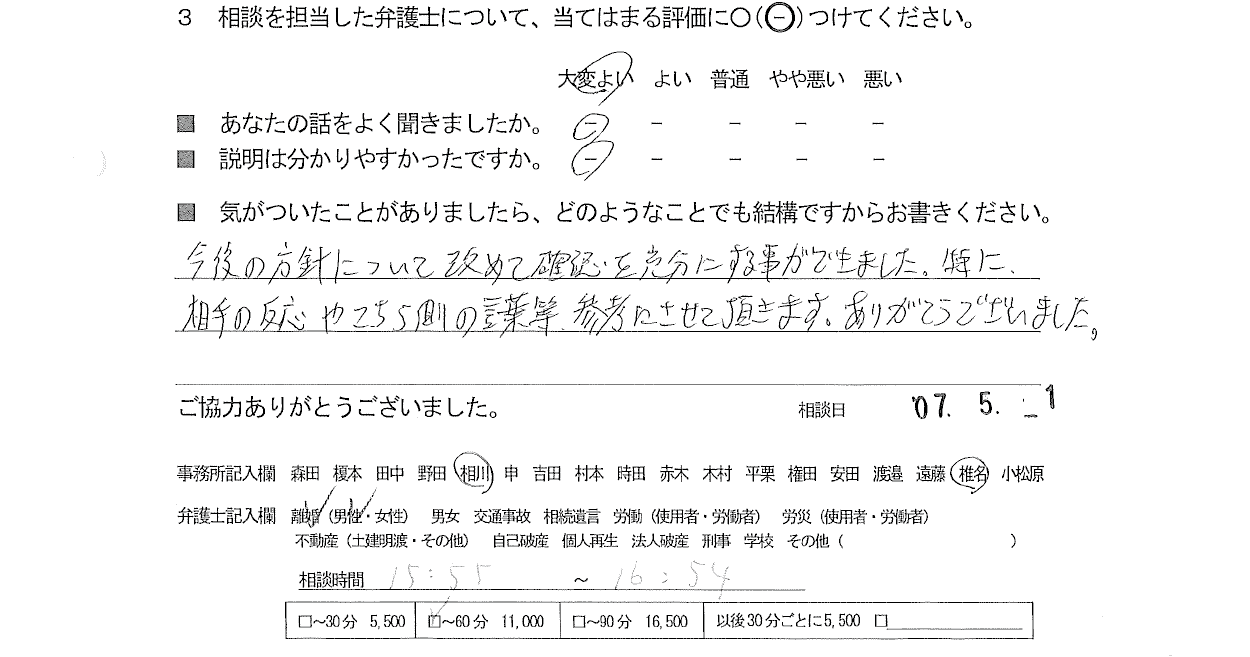 3 相談を担当した弁護士について、当てはまる評価に○(⊖)つけてください。
大変よい よい 普通 やや悪い 悪い
■ あなたの話をよく聞きましたか。 − − − − −
■ 説明は分かりやすかったですか。 − − − − −
■ 気がついたことがありましたら、どのようなことでも結構ですからお書きください。
今後の方針について改めて確認を充分にする事ができました。特に、
相手の反応やこちら側の言葉等、参考にさせて頂きます。ありがとうございました。
ご協力ありがとうございました。 相談日 '07. 5. _1
事務所記入欄 森田 榎本 田中 野田 相川 申 吉田 村本 時田 赤木 木村 平栗 権田 安田 渡邉 遠藤 椎名 小松原
弁護士記入欄 離婚(男性・女性) 男女 交通事故 相続遺言 労働(使用者・労働者) 労災(使用者・労働者)
不動産(土建明渡・その他) 自己破産 個人再生 法人破産 刑事 学校 その他( )
相談時間 15:55 ~ 16:54
□~30分 5,500 □~60分 11,000 □~90分 16,500 以後30分ごとに5,500 □